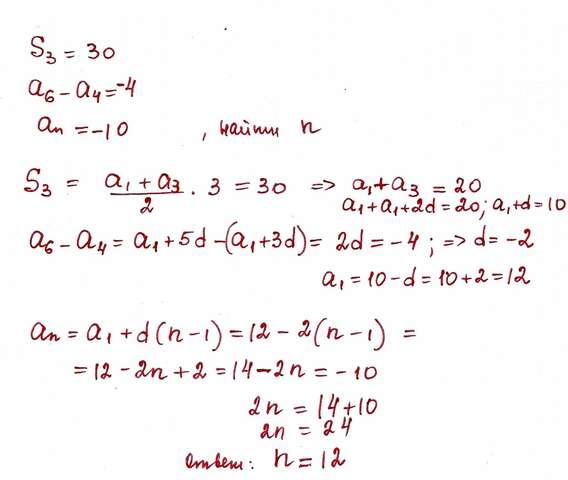 S₃ = 30
a₆ - a₄ = -4
aₙ = -10 , найти n
S₃ = (a₁ + a₃)/2 · 3 = 30 => a₁ + a₃ = 20
a₁ + a₁ + 2d = 20; a₁ + d = 10
a₆ - a₄ = a₁ + 5d - (a₁ + 3d) = 2d = -4; => d = -2
a₁ = 10 - d = 10 + 2 = 12
aₙ = a₁ + d(n - 1) = 12 - 2(n - 1) =
= 12 - 2n + 2 = 14 - 2n = -10
2n = 14 + 10
2n = 24
ответ: n = 12